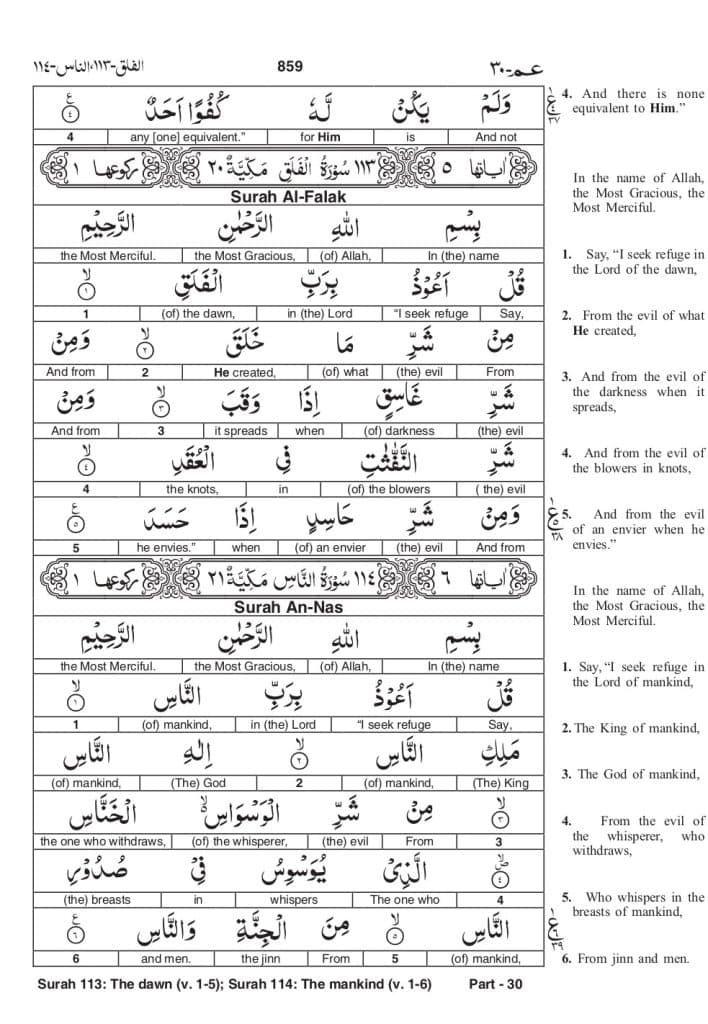 الفلق-١١٣،الناس-١١٤ 859 عـم-٣٠
وَلَمْ يَكُنْ لَّهٗ كُفُوًا اَحَدٌ ۠ ﴿٤﴾
And not is for Him any [one] equivalent.” 4
اٰيَاتُهَا ٥ ١١٣ سُوْرَةُ الْفَلَقِ مَكِّيَّةٌ ٢٠ ركوعها ١
Surah Al-Falak
بِسْمِ اللهِ الرَّحْمٰنِ الرَّحِيْمِ
In (the) name (of) Allah, the Most Gracious, the Most Merciful.
قُلْ اَعُوْذُ بِرَبِّ الْفَلَقِ ۙ ﴿١﴾
Say, “I seek refuge in (the) Lord (of) the dawn, 1
مِنْ شَرِّ مَا خَلَقَ ۙ ﴿٢﴾ وَمِنْ
From (the) evil (of) what He created, 2 And from
شَرِّ غَاسِقٍ اِذَا وَقَبَ ۙ ﴿٣﴾ وَمِنْ
(the) evil (of) darkness when it spreads 3 And from
شَرِّ النَّفّٰثٰتِ فِي الْعُقَدِ ۙ ﴿٤﴾
( the) evil (of) the blowers in the knots, 4
وَمِنْ شَرِّ حَاسِدٍ اِذَا حَسَدَ ۠ ﴿٥﴾
And from (the) evil (of) an envier when he envies.” 5
اٰيَاتُهَا ٦ ١١٤ سُوْرَةُ النَّاسِ مَكِّيَّةٌ ٢١ ركوعها ١
Surah An-Nas
بِسْمِ اللهِ الرَّحْمٰنِ الرَّحِيْمِ
In (the) name (of) Allah, the Most Gracious, the Most Merciful.
قُلْ اَعُوْذُ بِرَبِّ النَّاسِ ۙ ﴿١﴾
Say, “I seek refuge in (the) Lord (of) mankind, 1
مَلِكِ النَّاسِ ۙ ﴿٢﴾ اِلٰهِ النَّاسِ
(The) King (of) mankind, 2 (The) God (of) mankind,
ۙ ﴿٣﴾ مِنْ شَرِّ الْوَسْوَاسِ ۙ الْخَنَّاسِ
3 From (the) evil (of) the whisperer, the one who withdraws,
﴿٤﴾ الَّذِيْ يُوَسْوِسُ فِيْ صُدُوْرِ
4 The one who whispers in (the) breasts
النَّاسِ ۙ ﴿٥﴾ مِنَ الْجِنَّةِ وَالنَّاسِ ۠ ﴿٦﴾
(of) mankind, 5 From the jinn and men. 6
4. And there is none
equivalent to Him.”
In the name of Allah,
the Most Gracious, the
Most Merciful.
1. Say, “I seek refuge in
the Lord of the dawn,
2. From the evil of what
He created,
3. And from the evil of
the darkness when it
spreads,
4. And from the evil of
the blowers in knots,
5. And from the evil
of an envier when he
envies.”
In the name of Allah,
the Most Gracious, the
Most Merciful.
1. Say, “I seek refuge in
the Lord of mankind,
2. The King of mankind,
3. The God of mankind,
4. From the evil of
the whisperer, who
withdraws,
5. Who whispers in the
breasts of mankind,
6. From jinn and men.
Surah 113: The dawn (v. 1-5); Surah 114: The mankind (v. 1-6) Part - 30